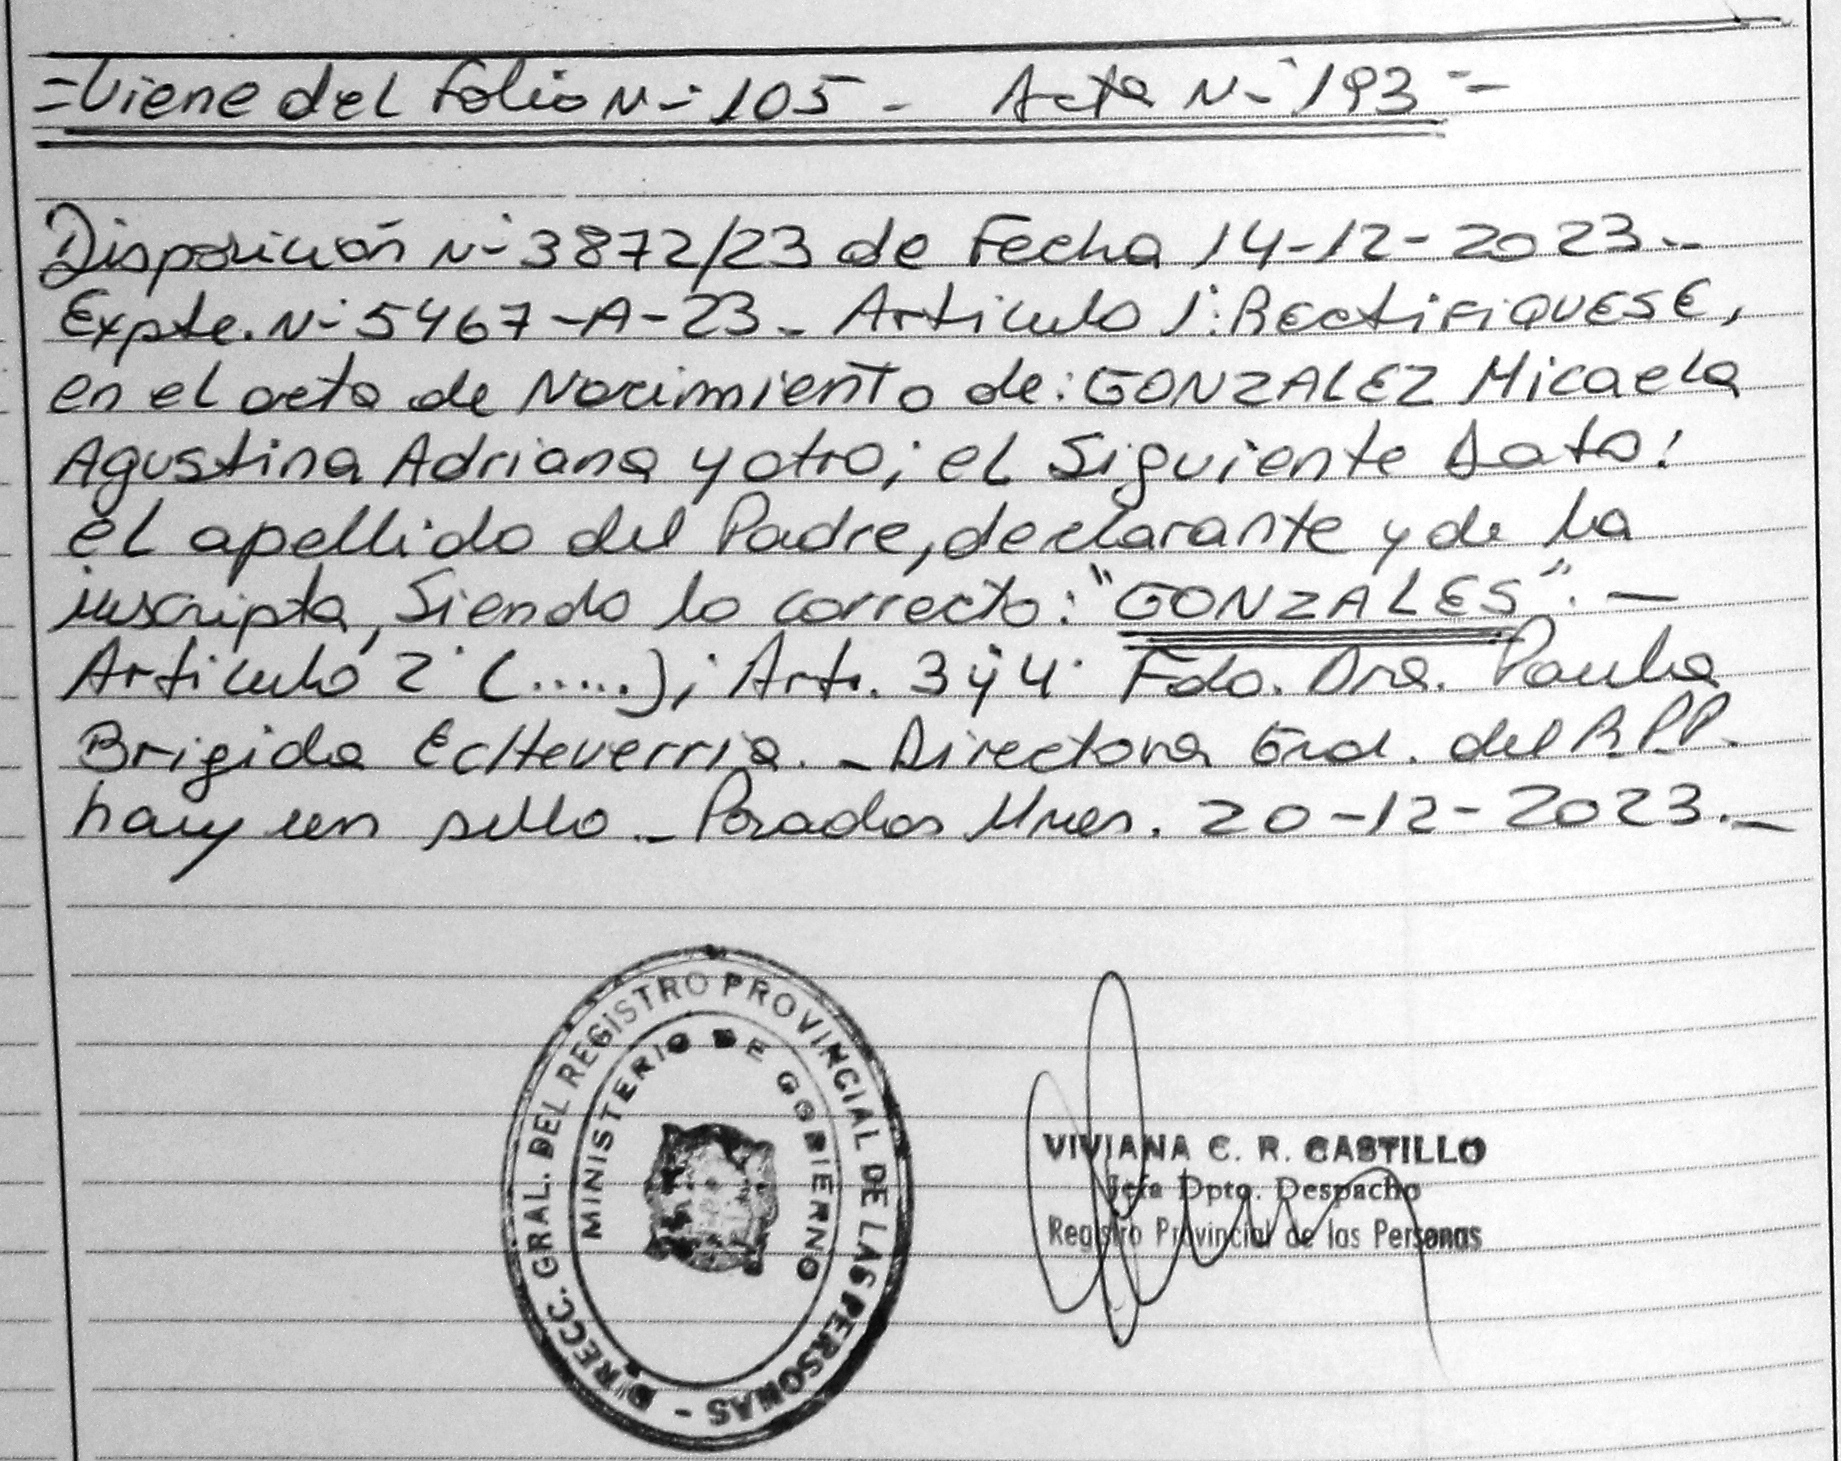 =Viene del Folio N-° 105 - Acta N-° 193 =-
Disposición N-° 3872/23 de Fecha 14-12-2023.-
Expte. N-° 5467-A-23.- Articulo 1°: RectiFIQUESE,
en el acta de Nacimiento de: GONZALEZ Micaela
Agustina Adriana y otro; el Siguiente Dato:
el apellido del Padre, declarante y de la
inscripta, Siendo lo correcto: "GONZALES". —
Articulo 2° (.....); Art. 3 y 4° Fdo. Dra. Paula
Brigida EcHeverria. - Directora Gral. del R.P.P.
hay un sello. - Posadas Mnes. 20-12-2023. —
DIRECC. GRAL. DEL REGISTRO PROVINCIAL DE LAS PERSONAS -
MINISTERIO DE GOBIERNO
VIVIANA C. R. CASTILLO
Jefa Dpto. Despacho
Registro Provincial de las Personas